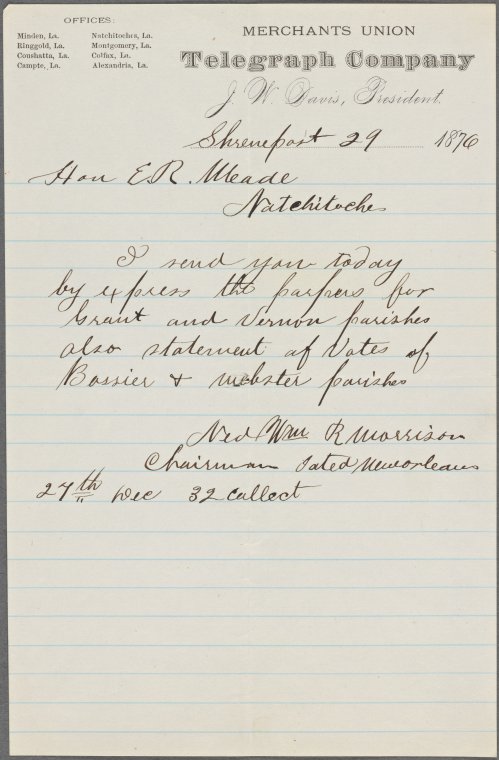 OFFICES:
Minden, La. Natchitoches, La.
Ringgold, La. Montgomery, La.
Coushatta, La. Colfax, La.
Campte, La. Alexandria, La.
MERCHANTS UNION
Telegraph Company
J. W. Davis, President.
Shreveport 29 1876
Hon E. R. Meade
Natchitoches
I send you today
by express the parpers for
Grant and Vernon parishes
also statement of Votes of
Bossier & webster parishes
Wm R Morrison
Chairman Dated New orleans
27th Dec 32 collect